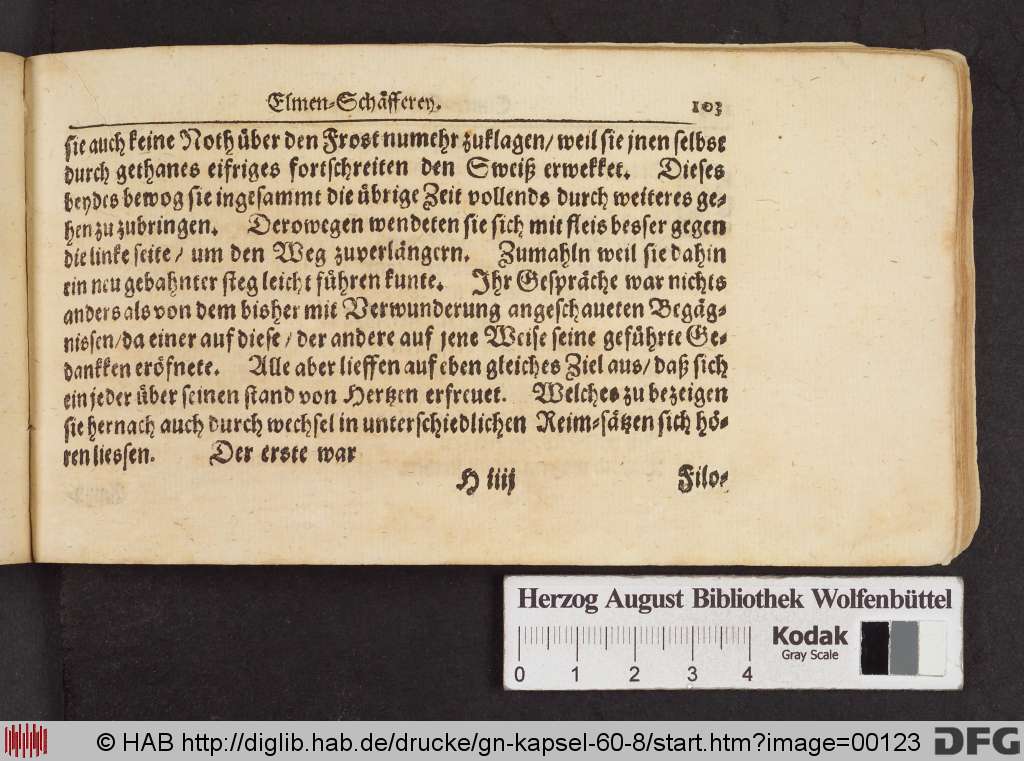 Elmen-Schäfferey. 103
sie auch keine Noth über den Frost numehr zuklagen/ weil sie jnen selbst
durch gethanes eifriges fortschreiten den Sweiß erwekket. Dieses
beydes bewog sie ingesammt die übrige Zeit vollends durch weiteres ge-
hen zu zubringen. Derowegen wendeten sie sich mit fleis besser gegen
die linke seite/ um den Weg zuverlängern. Zumahln weil sie dahin
ein neu gebahnter steg leicht führen kunte. Ihr Gespräche war nichts
anders als von dem bisher mit Verwunderung angeschaueten Begäg-
nissen/ da einer auf diese/ der andere auf jene Weise seine geführte Ge-
dankken eröfnete. Alle aber lieffen auf eben gleiches Ziel aus/ daß sich
ein jeder über seinen stand von Hertzen erfreuet. Welches zu bezeigen
sie hernach auch durch wechsel in unterschiedlichen Reim-sätzen sich hö-
ren liessen. Der erste war
H iiij Filo-
Herzog August Bibliothek Wolfenbüttel
0 1 2 3 4
Kodak
Gray Scale
© HAB http://diglib.hab.de/drucke/gn-kapsel-60-8/start.htm?image=00123 DFG